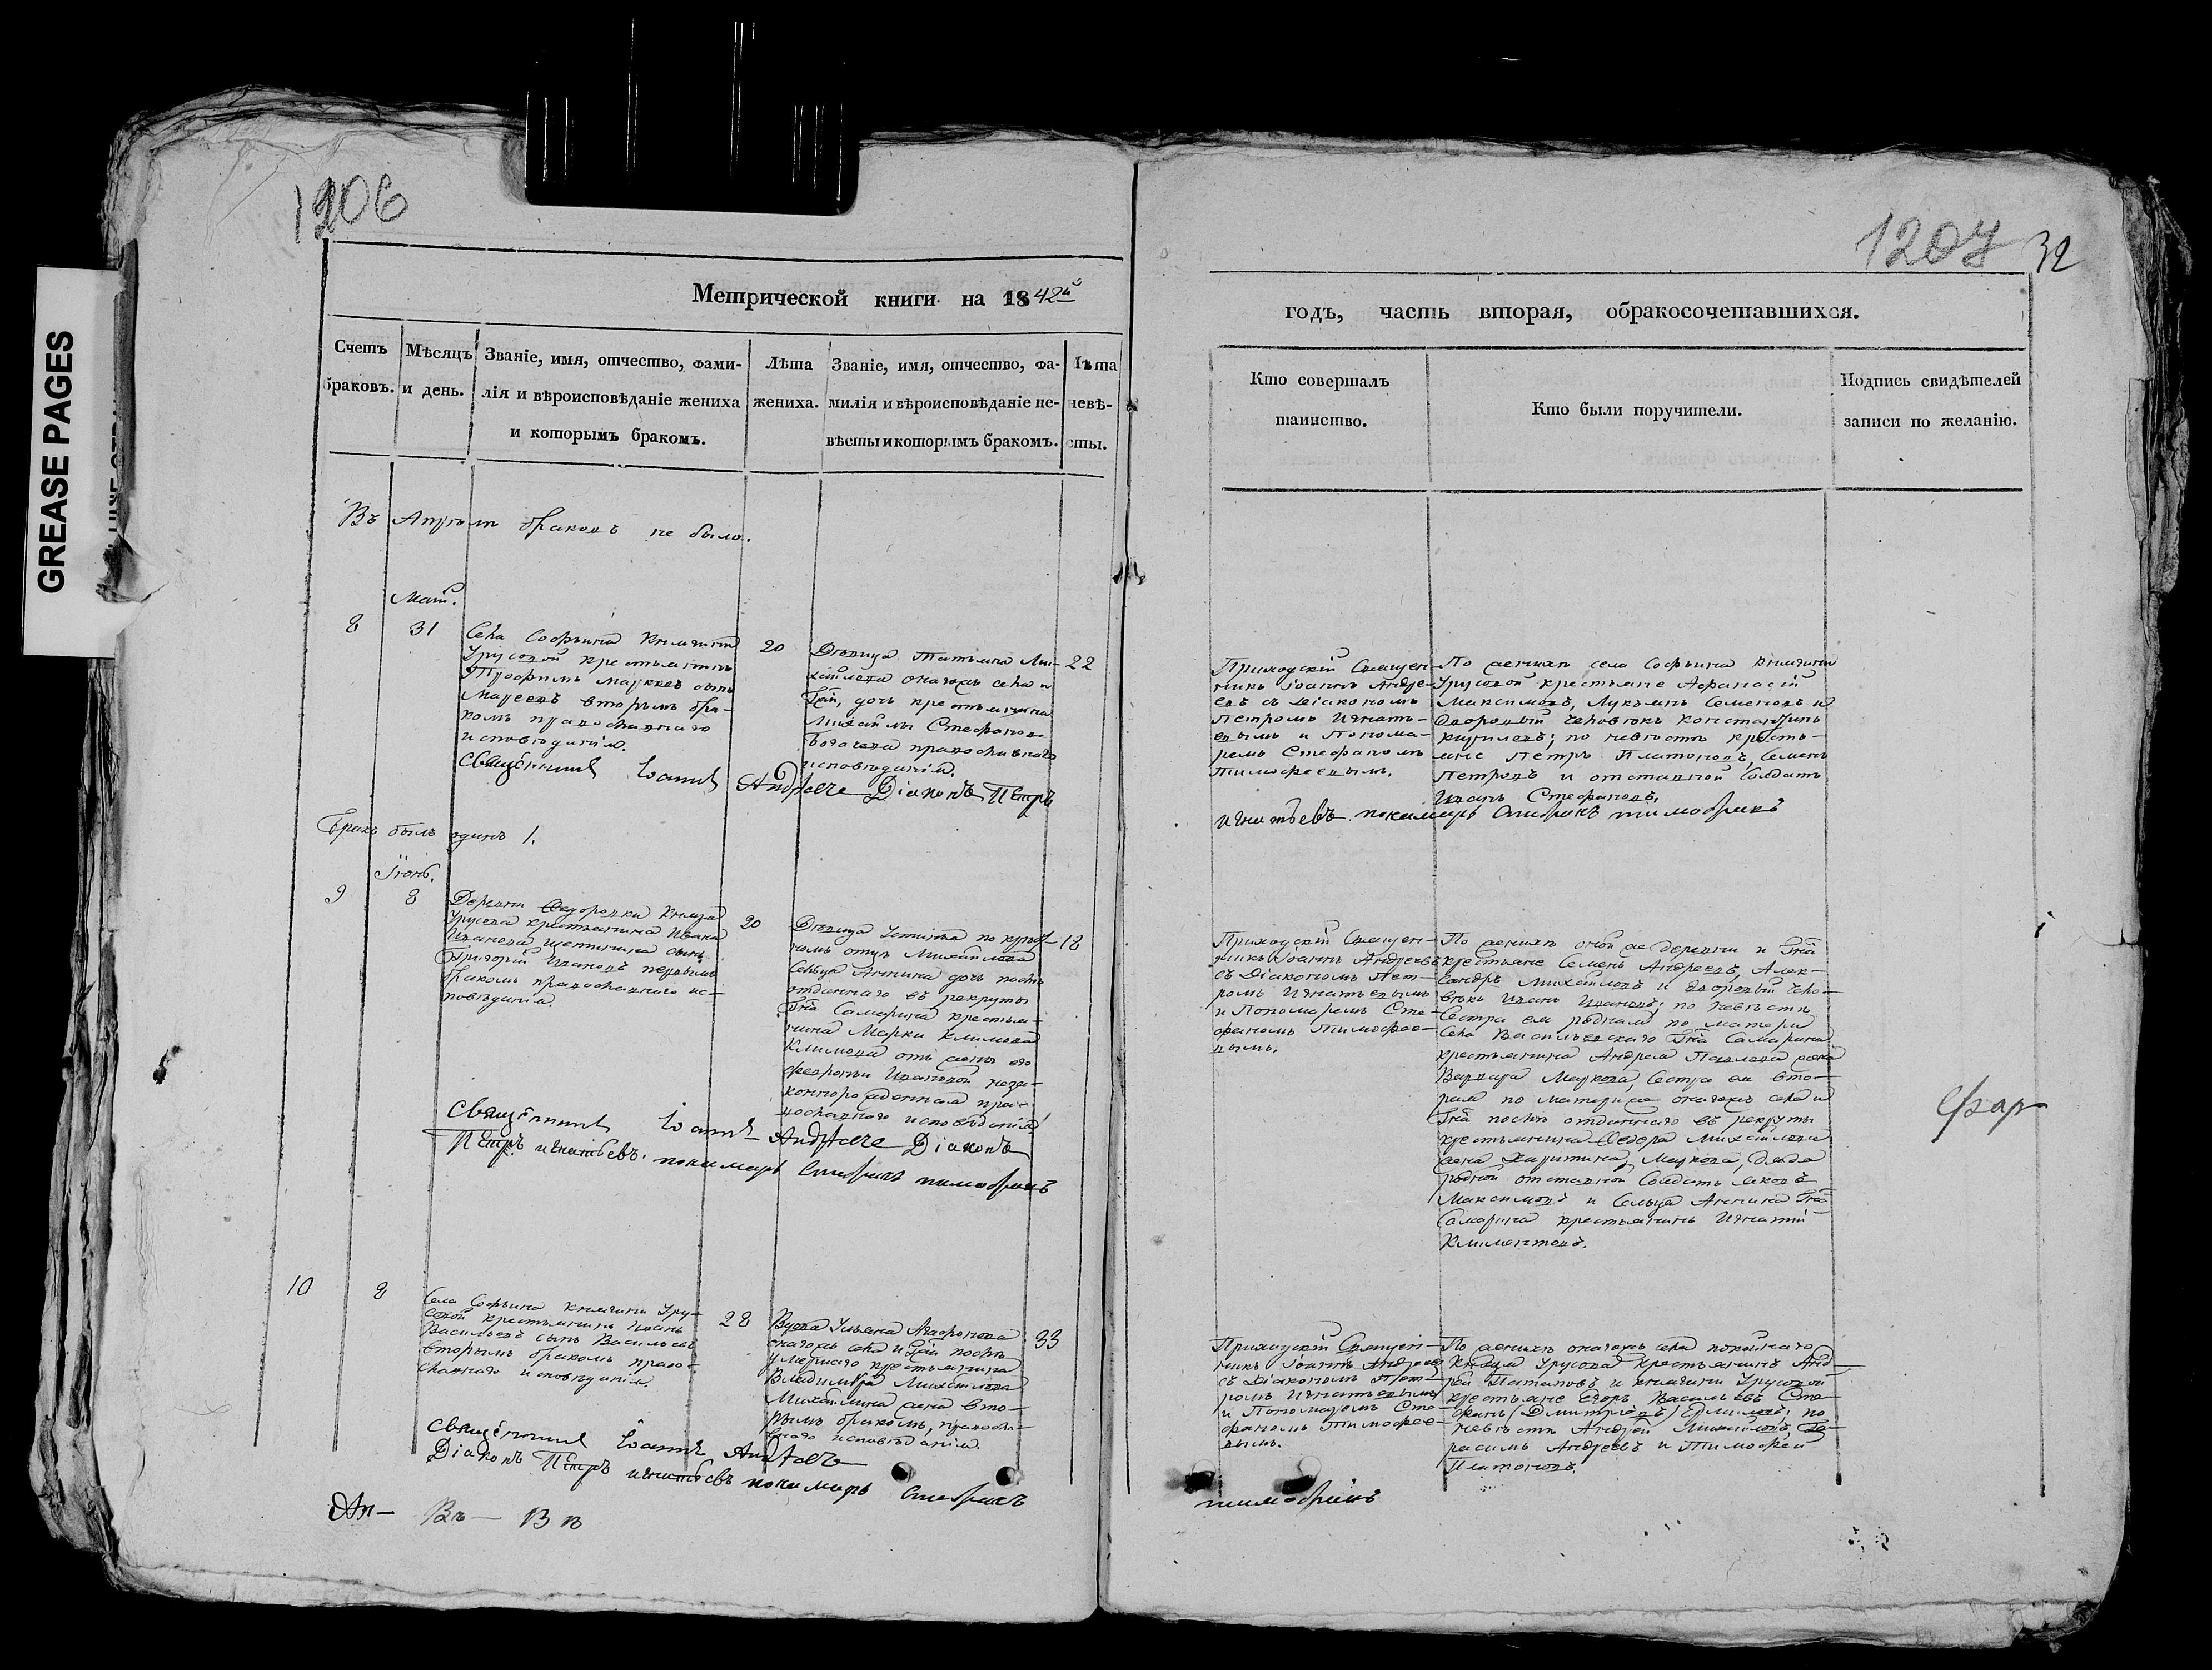 GREASE PAGES
1206
Метрической книги на 1842й
Счетъ браковъ.
Мѣсяцъ и день.
Званіе, имя, отчество, фами-
лія и вѣроисповѣданіе жениха
и которымъ бракомъ.
Лѣта
жениха.
Званіе, имя, отчество, фа-
милія и вѣроисповѣданіе не-
вѣсты и которымъ бракомъ.
Лѣта
невѣ-
сты.
Въ Апрѣлѣ браковъ не было.
Маій.
8
31
Села Софьина Княгини
Урусовой крестьянинъ
Трофимъ Марковъ сынъ
вторымъ бра-
комъ православнаго
исповѣданія.
20
Дѣвица Татьяна Ми-
хайлова онагожъ села и
Гжи, дочь крестьянина
Михайлы Стефанова
православнаго
исповѣданія.
22
Священникъ Іоаннъ Андреевъ Діаконъ Петръ
Бракъ былъ одинъ 1.
Іюнь.
9
8
Деревни Ѳедоровки Князя
Урусова крестьянина Ивана
Иванова сынъ
Григорій Ивановъ первымъ
бракомъ православнаго ис-
повѣданія.
20
Дѣвица Устинья по крест-
номъ отцѣ Михайлова
Сельца Аннина дочь послѣ
отданнаго въ рекруты
Гна Самарина крестья-
нина Марка Климова
Климова отъ жены его
Ѳедосьи Ивановой неза-
коннорожденная пра-
вославнаго исповѣданія
18
Священникъ Іоаннъ Андреевъ Діаконъ
Петръ игнатьевъ. пономарь Стефанъ тимофеевъ
10
8
Села Софьина Княгини Уру-
совой крестьянинъ Иванъ
Васильевъ сынъ Васильевъ
вторымъ бракомъ право-
славнаго исповѣданія.
28
Вдова Ульяна Агафонова
онагожъ села и Гжи послѣ
умершаго крестьянина
Владимира Михайлова
Михайлина жена вто-
рымъ бракомъ, правосла-
внаго исповѣданія.
33
Священникъ Іоаннъ Андреевъ
Діаконъ Петръ игнатьевъ пономарь Стефанъ
1207 32
годъ, часть вторая, обракосочетавшихся.
Кто совершалъ
таинство.
Кто были поручители.
Подпись свидѣтелей
записи по желанію.
Приходскій Священ-
никъ Іоаннъ Андре-
евъ съ Діакономъ
Петромъ Игнать-
евымъ и Понома-
ремъ Стефаномъ
Тимофеевымъ.
По женихѣ села Софьина Княгини
Урусовой крестьяне Афанасій
Максимовъ, Лукьянъ Семеновъ и
дворовый человѣкъ Константинъ
Кириловъ; по невѣстѣ кресть-
яне Петръ Платоновъ, Семенъ
Петровъ и отставной Солдатъ
Иванъ Стефановъ.
игнатьевъ. пономарь Стефанъ тимофеевъ
Приходскій Священ-
никъ Іоаннъ Андреевъ
съ Діакономъ Пет-
ромъ Игнатьевымъ
и Пономаремъ Сте-
фаномъ Тимофее-
вымъ.
По женихѣ оной же деревни и Гна
крестьяне Семенъ Андреевъ, Алек-
сандръ Михайловъ и дворовый чело-
вѣкъ Иванъ Ивановъ; по невѣстѣ
Сестра ея родная по матери
Села Васильевскаго Гна Самарина
крестьянина Андрея Павлова жена
Варвара Маркова, Сестра ея вто-
рая по матери же онагожъ села и
Гна послѣ отданнаго въ рекруты
крестьянина Ѳедора Михайлова
жена Харитина Маркова, дядя
родной отставной Солдатъ Яковъ
Максимовъ и Сельца Аннина Гна
Самарина крестьянинъ Игнатій
Климентовъ.
Приходскій Священ-
никъ Іоаннъ Андреевъ
съ Діакономъ Пет-
ромъ Игнатьевымъ
и Пономаремъ Сте-
фаномъ Тимофее-
вымъ.
По женихѣ онагожъ села покойнаго
Князя Урусова крестьянинъ Анд-
рей Потаповъ и княгини Урусовой
крестьяне Егоръ Васильевъ Сте-
фанъ (Дмитріевъ) Ермиловъ; по
невѣстѣ Андрей Михайловъ, Ге-
расимъ Андреевъ и Тимофей
Платоновъ.
тимофеевъ